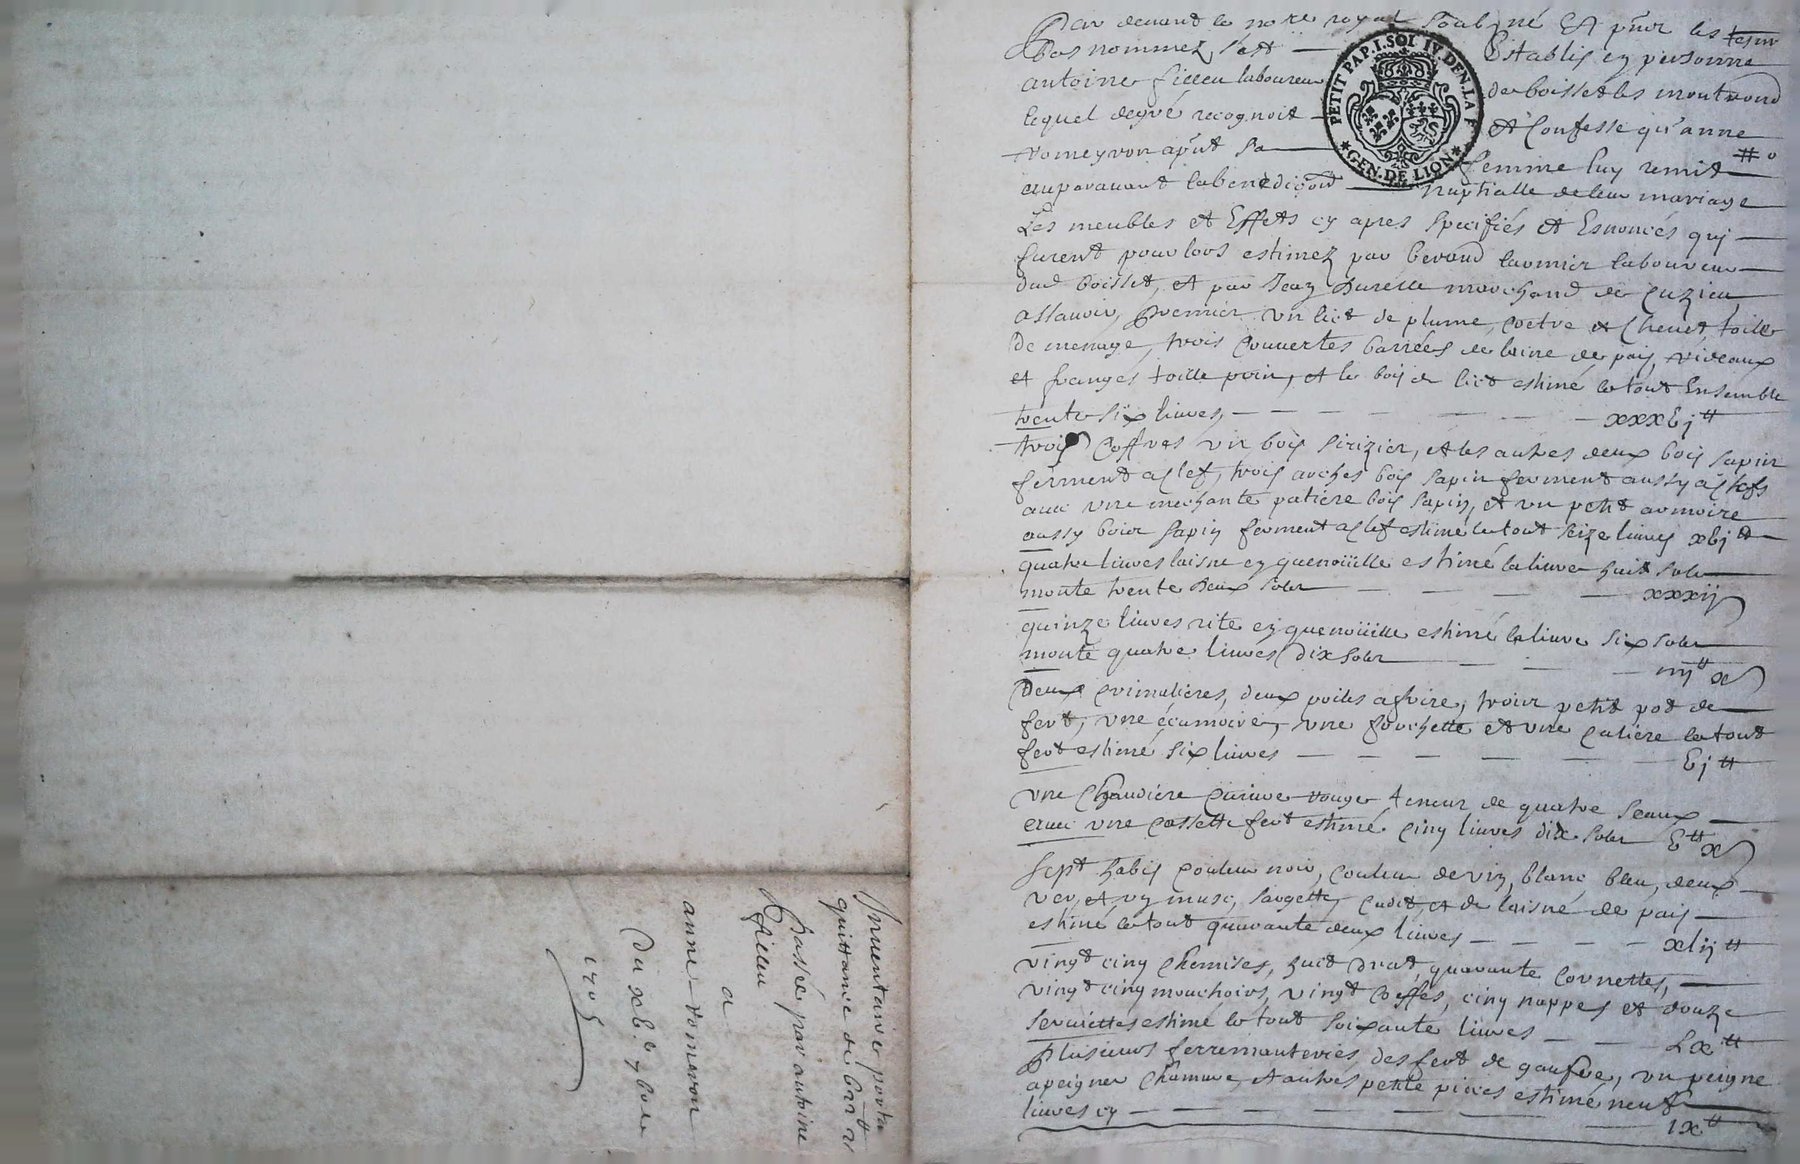 Inventaire portant
quittance de
passée par antoine
filleu
a
anne romeyron
Du xb.e 7bre
1705
PETIT PAP. I. SOL IV. DEN. LA F.
GEN. DE LION
Par devant le no.re royal soubz.né et pñt les
bas nommez s'est Establis en personne
antoine filleu laboureur de boisset les montrond
lequel de gré recognoit et Confesse qu'anne
romeyron apñt sa femme luy remit
auparavant la benediçoñ nuptialle de leur mariage
Les meubles et Effets cy apres specifiés et Enoncés qui
furent pour lors estimez par laboureur
dud boisset, et par Jean marchand de Cuzieu
assavoir, premier un lict de plume, coetre et Chevet, toile
De menage, trois Couvertes barrées de laine de pais, rideaux
et franges toille et le bois de lict estimé le tout Ensemble
trente six livres, xxxbj tt
trois Coffres un bois sirizier, et les autres deux bois sapin
ferment a clef, trois arches bois sapin ferment aussy a clefs
avec une mechante patiere bois sapin, et un petit armoire
aussy bois sapin ferment a clef estimé le tout seize livres xbj tt
quatre livres laisne en quenoüille estimé la livre huit solz
monte trente deux solz xxxij s
quinze livres rite en quenoüille estimé la livre six solz
monte quatre livres dix solz iiij tt x s
Deux Crimalieres, deux poiles a frire, trois petit pot de
fert, une écumoire, une fourchette et une le tout
fert estimé six livres bj tt
une Chaudiere Cuivre rouge teneur de quatre seaux
avec une Cassette fert estimé Cinq livres dix solz b tt x s
sept habis Couleur noir, Couleur de vin, blanc, bleu, deux
ver, et un musc, sargette, Cadit, et de laisne de pais
estimé le tout quarante deux livres xlij tt
vingt cinq Chemises, huit drat, quarante Cornettes,
vingt cinq mouchoirs, vingt Coeffes, cinq nappes et douze
serviettes estimé le tout soixante livres Lx tt
plusieurs ferremanteries, des fert de gaufre, un peigne
a peigner Chanvre, et autres petite pieces estimé neuf
livres cy ix tt